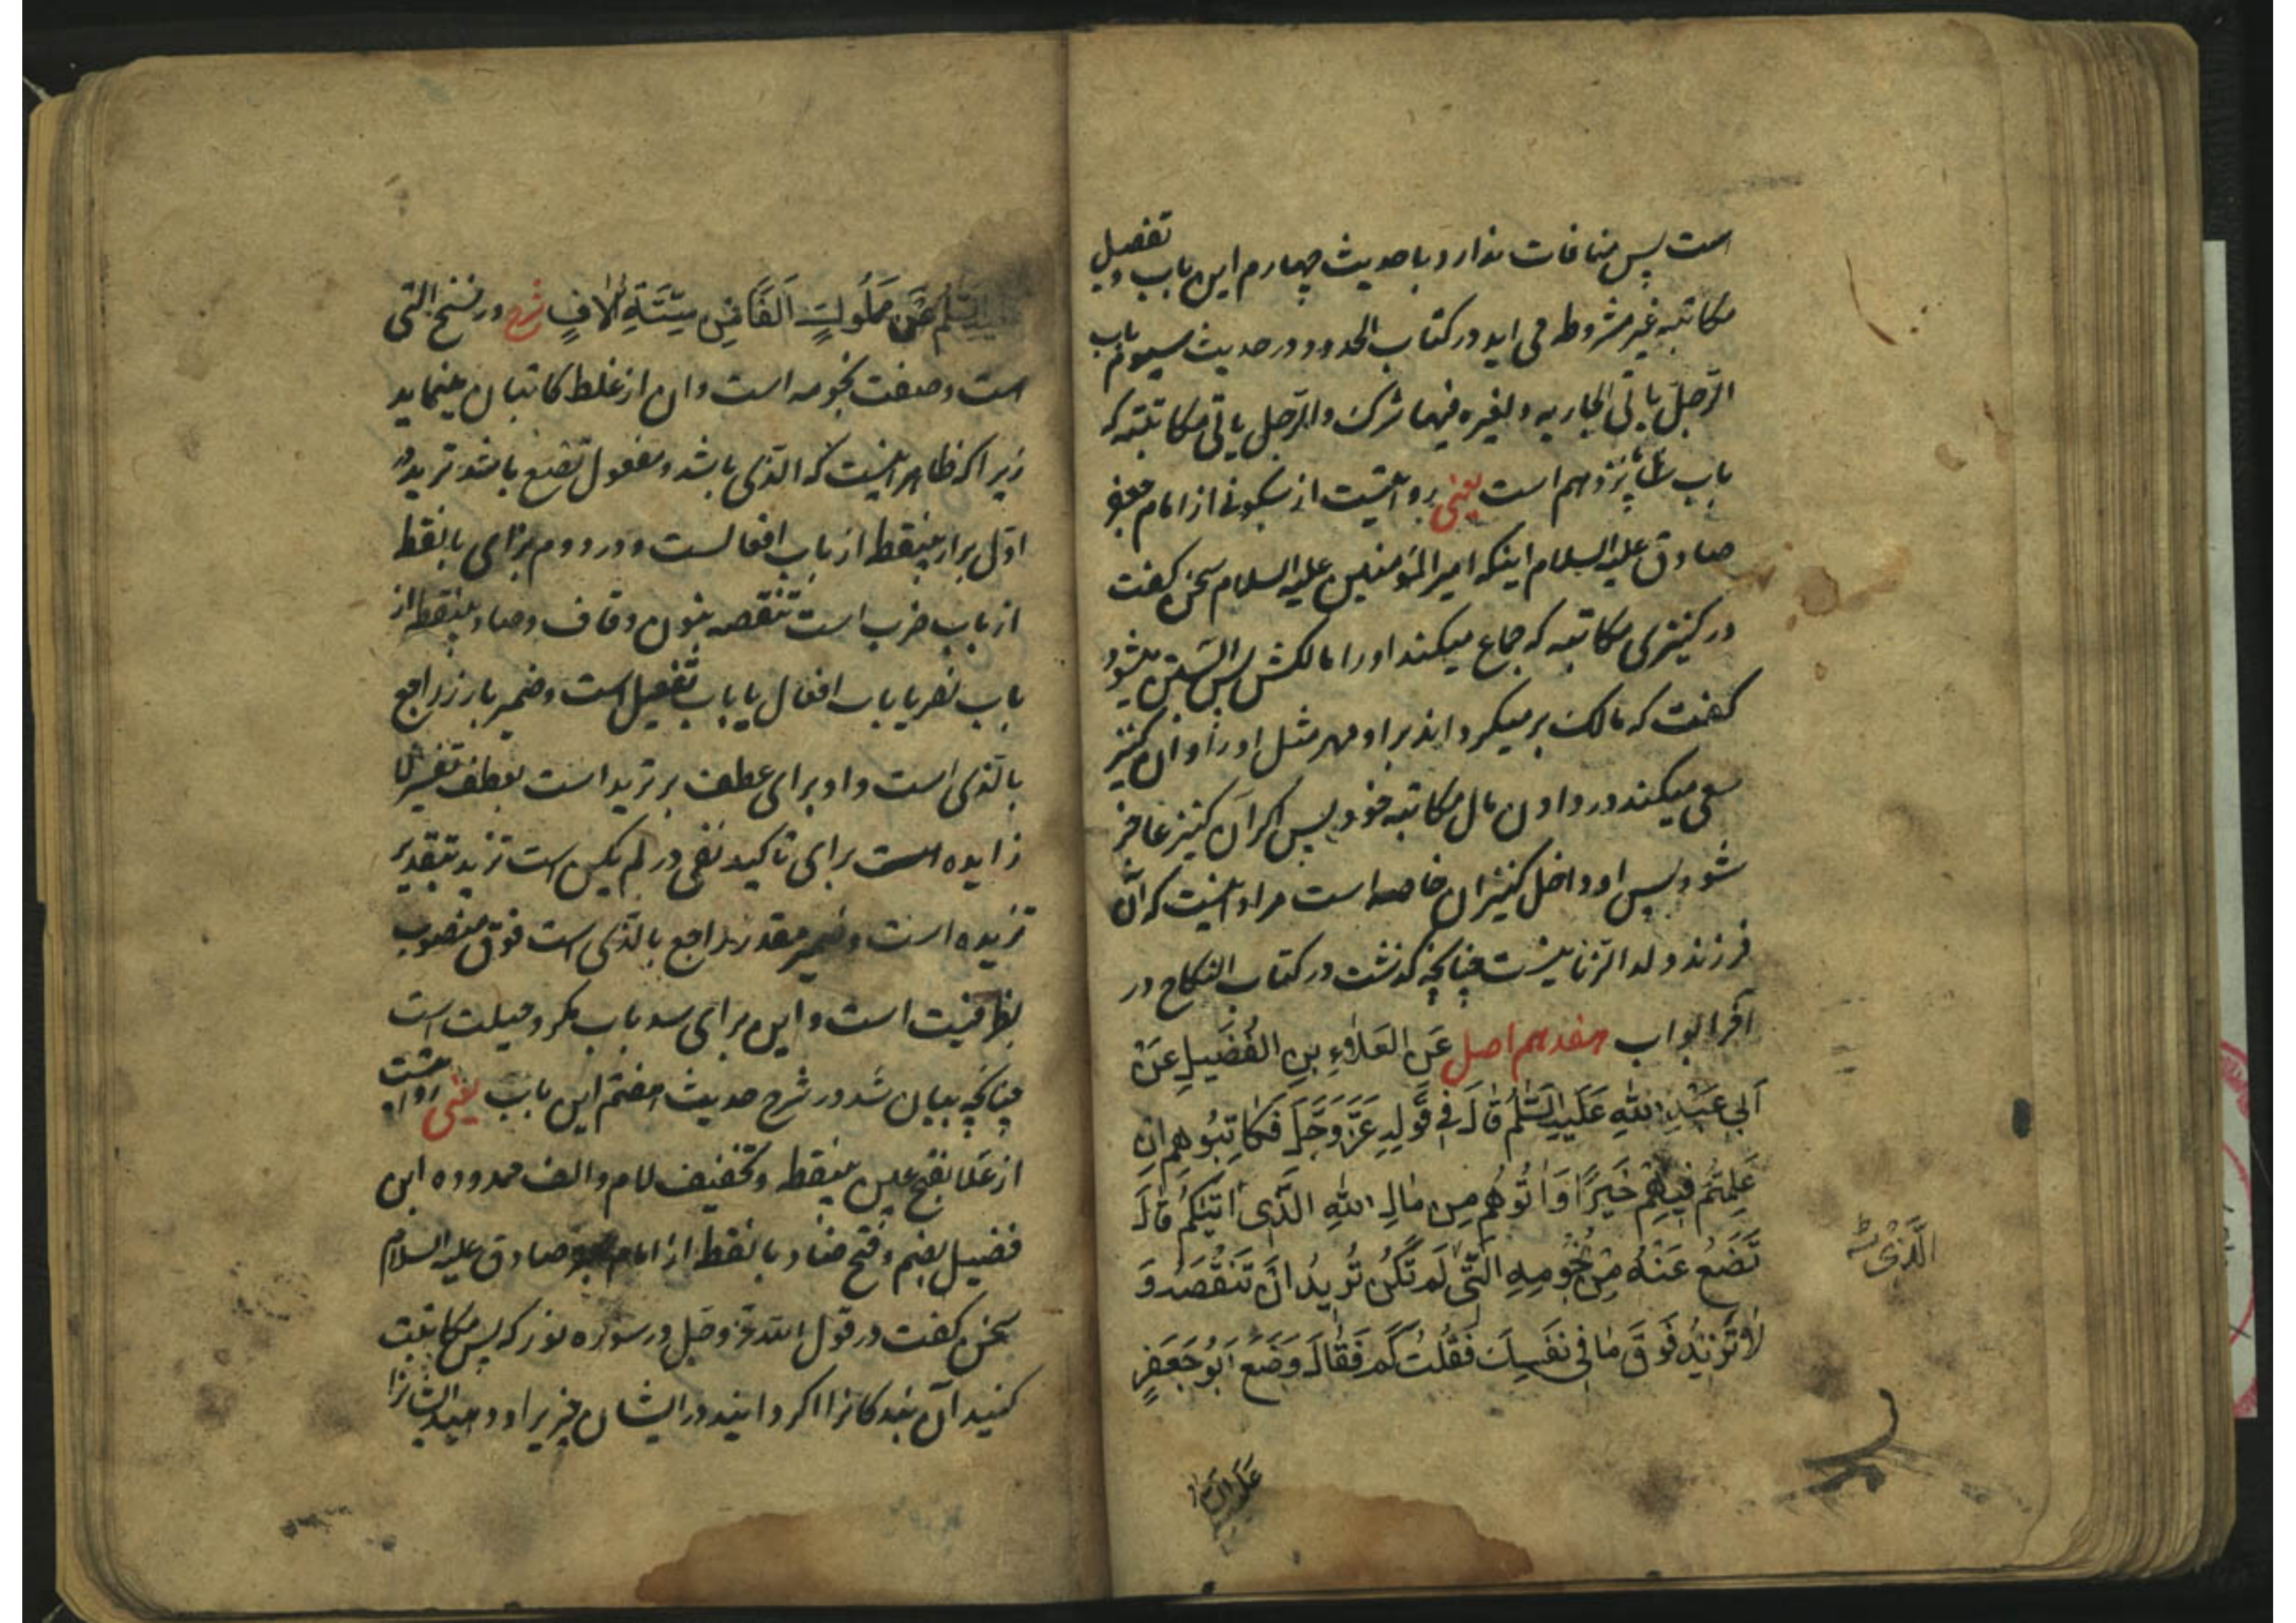 است پس منافات ندارد با حدیث چهارم این باب و تفصیل
مکاتبه غیر مشروطه می اید در کتاب الحدود در حدیث سیوم باب
الرّجل یاتی الجاریه و لغیره فیها شرک والرّجل یاتی مکاتبته که
باب شانزدهم است یعنی روایتست از سکونی از امام جعفر
صادق علیه السلام اینکه امیر المؤمنین علیه السلام سخن گفت
در کنیزی مکاتبه که جماع میکند اورا مالکش پس ابستن میشود
گفت که مالک بر میگرداند بر او مهر مثل اورا و آن کنیز
سعی میکند در دادن مال مکاتبه خود پس اگر آن کنیز عاجز
شود پس او داخل کنیزان خاصه است مراد اینست که آن
فرزند ولد الزنا نیست چنانچه گذشت در کتاب النکاح در
آخر ابواب هفدهم اصل عَنِ العَلاءِ بنِ الفُضَیلِ عَنْ
اَبی عَبْدِ اللّٰهِ عَلَیهِ السَّلٰمُ قٰالَ فی قَولِهِ عَزَّ وَجَلَّ فَکٰاتِبُوهم اِن
عَلِمتُم فیهِم خَیرًا وَاٰتُوهُم مِن مٰالِ اللّٰهِ الَّذی اٰتیٰکُم قٰالَ
تَضَعُ عَنْهُ مِنْ نُجُومِهِ الَّتی لَم تَکُن تُریدُ اَنْ تَنْقُصَهُ وَ
لاٰ تَزیدُ فَوقَ مٰا فی نَفسِکَ فَقُلتُ کَم فَقٰالَ وَضَعَ اَبُو جَعفَرٍ
الَّذی
علیه السلام
عَن مَملُوکٍ اَلفًا مِن سِتَّةِ اٰلافٍ شرح در نسخ التی
است و صفت نجومه است و ان از غلط کاتبان مینماید
زیرا که ظاهر اینست که الذی باشد و مفعول تضع باشد ترید در
اوّل براء بینقطه از باب افعالست و در دوم بزای بانقطه
از باب ضرب است تنقصه بنون و قاف و صاد بینقطه از
باب نصر یا باب افعال یا باب تفعیل است و ضمیر بارز راجع
بالذی است واو برای عطف بر ترید است بعطف تفسیر لا
زایده است برای تاکید نفی در لم یکن است تزید بتقدیر
تزیده است و ضمیر مقدر راجع بالذی است فوق منصوب
بظرفیت است و این برای سد باب مکر و حیلت است
چنانچه بیان شد در شرح حدیث هفتم این باب یعنی روایتست
از علا بفتح عین بینقطه و تخفیف لام و الف ممدوده ابن
فضیل بضم و فتح ضاد بانقطه از امام صادق علیه السلام
سخن گفت در قول اللّه عز وجل در سوره نور که پس مکاتبت
کنید آن بندکانرا اکر دانید در ایشان چیزیرا و دهید ایشانرا